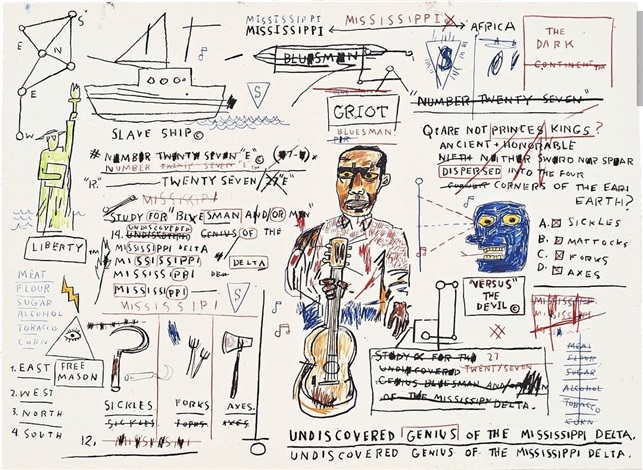 S
E N
E
W
MISSISSIPPI
MISSISSIPPI
MISSISSIPPI
AFRICA
THE
DARK
CONTINENT™
BLUESMAN
S
A
S
SLAVE SHIP©
GRIOT
BLUESMAN
"NUMBER TWENTY SEVEN"
# NUMBER TWENTY SEVEN "E" ©
NUMBER TWENTY SEVEN "E"
"R." TWENTY SEVEN
MISSISSIPI
STUDY FOR "BLUESMAN AND/OR MAN"
14. UNDISCOVERED GENIUS OF THE
UNDISCOVERED
MISSISSIPPI DELTA
MISSISSIPPI DELTA
MISSISSIPPI
MISSISSIPPI
S
MISSISSIPI
LIBERTY™
MEAT
FLOUR
SUGAR
ALCOHOL
TOBACCO
CORN
FREE
MASON
1. EAST
2. WEST
3. NORTH
4. SOUTH
SICKLES FORKS AXES.
SICKLES FORKS AXES.
12.
Q: ARE NOT PRINCES KINGS?
ANCIENT + HONORABLE
NIETH NEITHER SWORD NOR SPEAR
DISPERSED INTO THE FOUR
CORNERS OF THE EAR
EARTH?
A. SICKLES
B. MATTOCKS
C. FORKS
D. AXES
"VERSUS"
THE
DEVIL©
MISSISSIPPI
MISSISSIPPI
STUDY FOR THE 27
UNDISCOVERED TWENTY/SEVEN
GENIUS BLUESMAN AND/OR MAN
OF THE MISSISSIPPI DELTA.
MEAL
FLOUR
SUGAR
ALCOHOL
TOBACCO
CORN
UNDISCOVERED GENIUS OF THE MISSISSIPPI DELTA.
UNDISCOVERED GENIUS OF THE MISSISSIPPI DELTA.